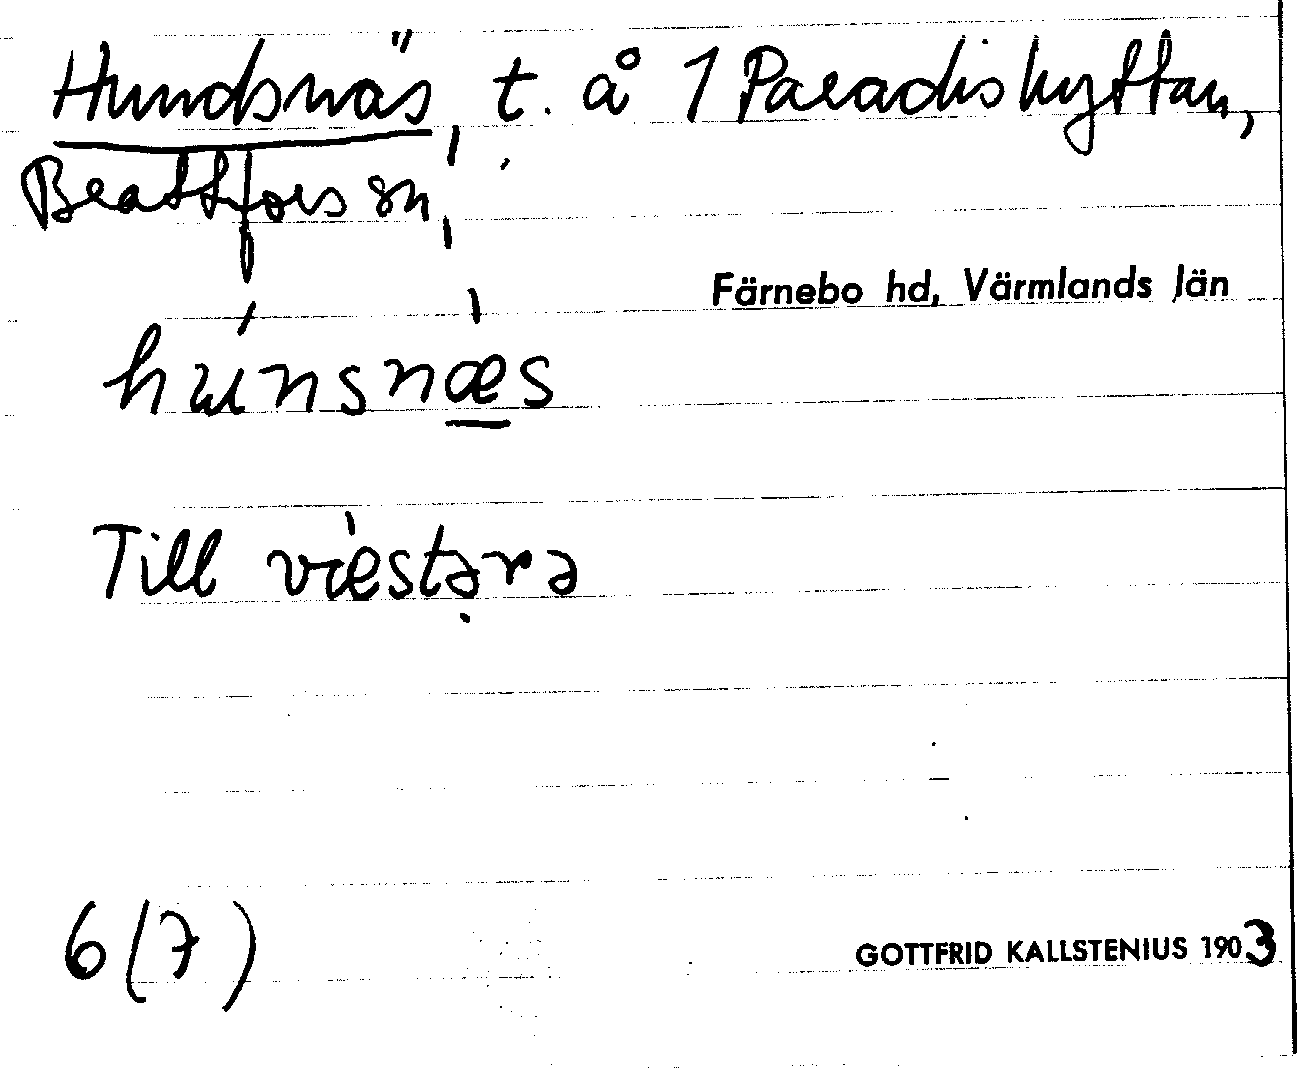 Hundsnäs, t. å 1 Paradishyttan,
Beatfors sn,
Färnebo hd, Värmlands län
húnsnæ̲s
Till vìestə̣rə
6(7)
GOTTFRID KALLSTENIUS 1903